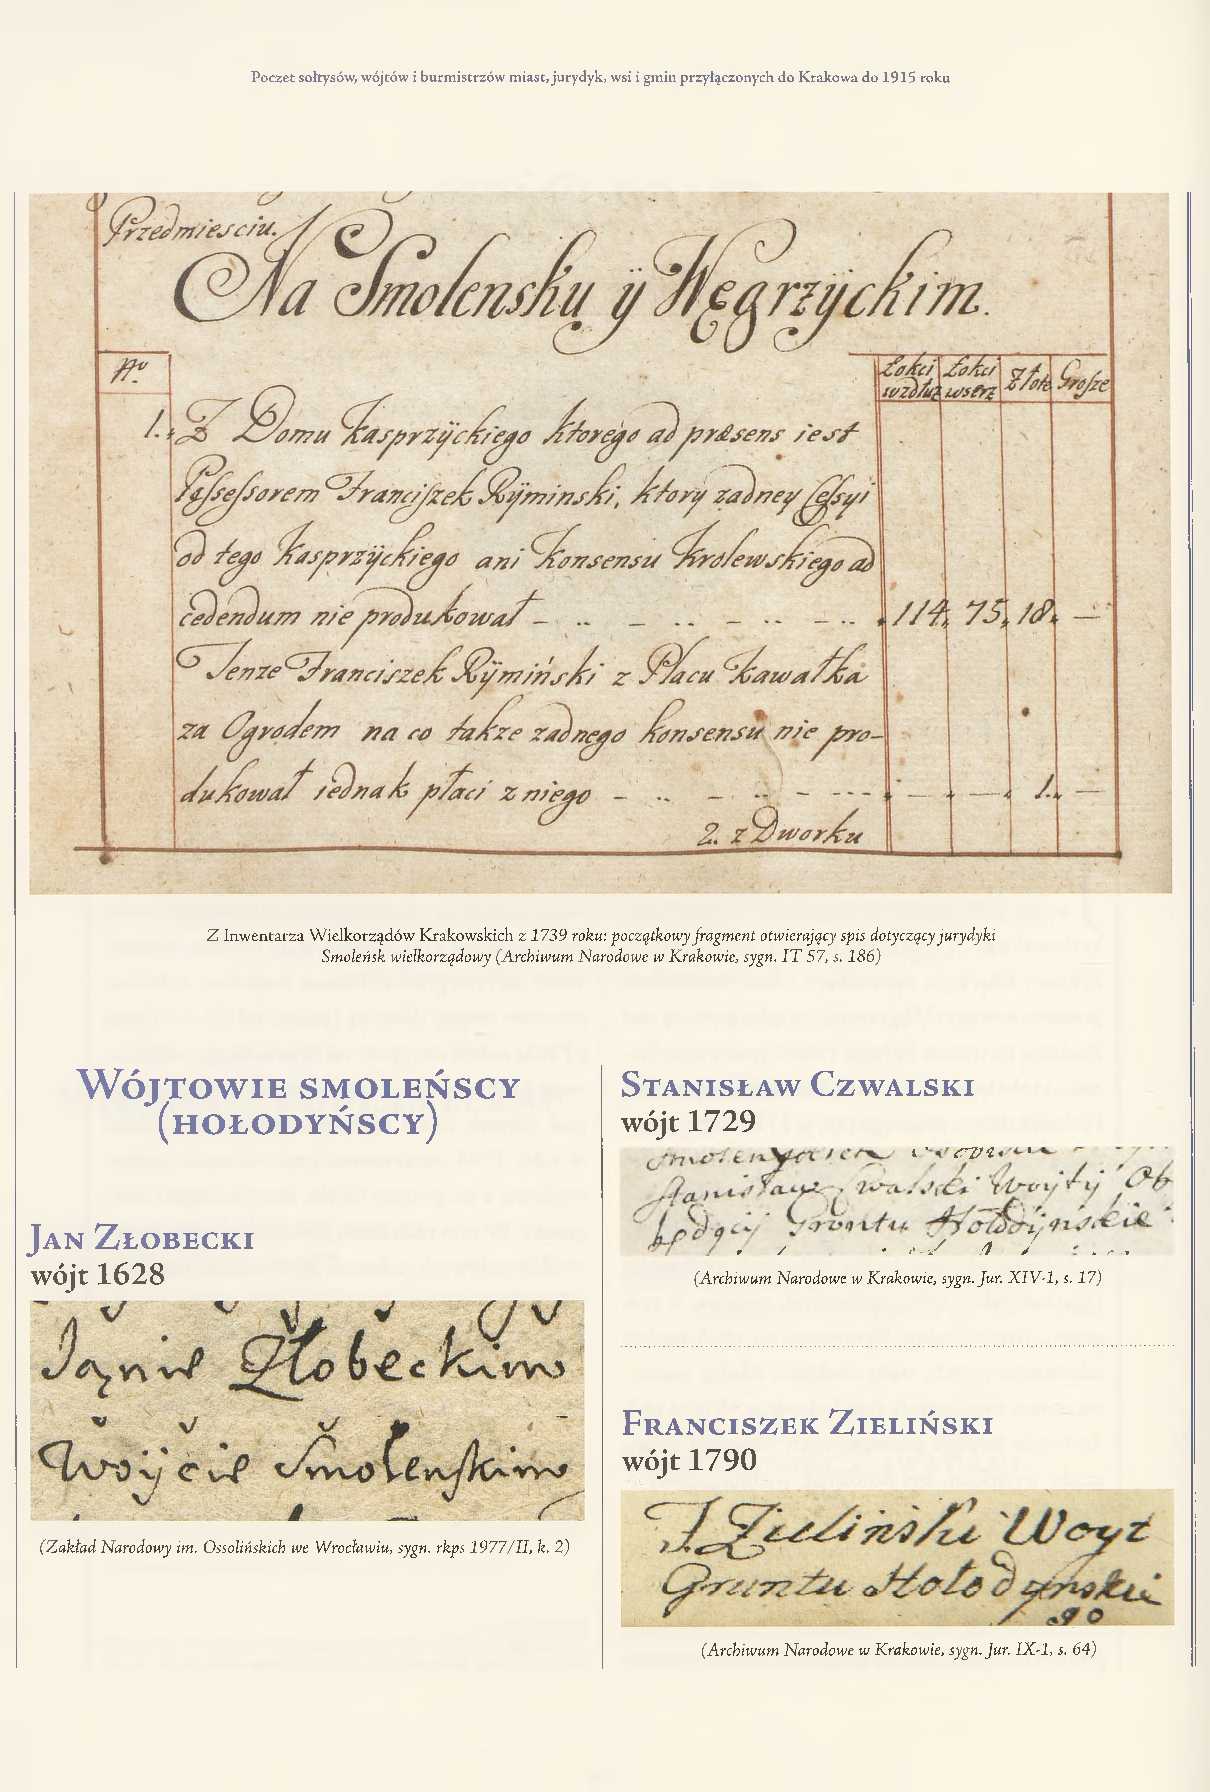 Poczet sołtysów, wójtów i burmistrzów miast, jurydyk, wsi i gmin przyłączonych do Krakowa do 1915 roku
Przedmiesciu.
Na Smolensku ÿ Węgrzÿckim.
Nº
Łokci wzdłuz
Łokci wserz
Złote
Grosze
1. Z Domu Kasprzÿckiego ktorego ad præsens iest
Possessorem Franciszek Rÿminski, ktory zadney Cessyi
od tego Kasprzÿckiego ani Konsensu Krolewskiego ad
cedendum nie produkował – .. – .. – .. – .. 114. 75. 18. –
Tenze Franciszek Rÿmiński z Placu Kawałka
za Ogrodem na co takze zadnego konsensu nie pro-
dukował iednak płaci z niego – .. – .. – ... – . – . 1. –
2. z Dworku
Z Inwentarza Wielkorządów Krakowskich z 1739 roku: początkowy fragment otwierający spis dotyczący jurydyki
Smoleńsk wielkorządowy (Archiwum Narodowe w Krakowie, sygn. IT 57, s. 186)
Wójtowie smoleńscy
(hołodyńscy)
Jan Złobecki
wójt 1628
Janie Złobeckim
Woÿcie Smolenskim
(Zakład Narodowy im. Ossolińskich we Wrocławiu, sygn. rkps 1977/II, k. 2)
Stanisław Czwalski
wójt 1729
Stanisław Cwalski Woyty Ob
będący Gruntu Hołodÿnskie
(Archiwum Narodowe w Krakowie, sygn. Jur. XIV-1, s. 17)
Franciszek Zieliński
wójt 1790
F. Zieliński Woyt
Gruntu Hołodynskie
go
(Archiwum Narodowe w Krakowie, sygn. Jur. IX-1, s. 64)